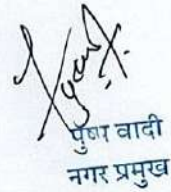 पुष्पा वादी
नगर प्रमुख